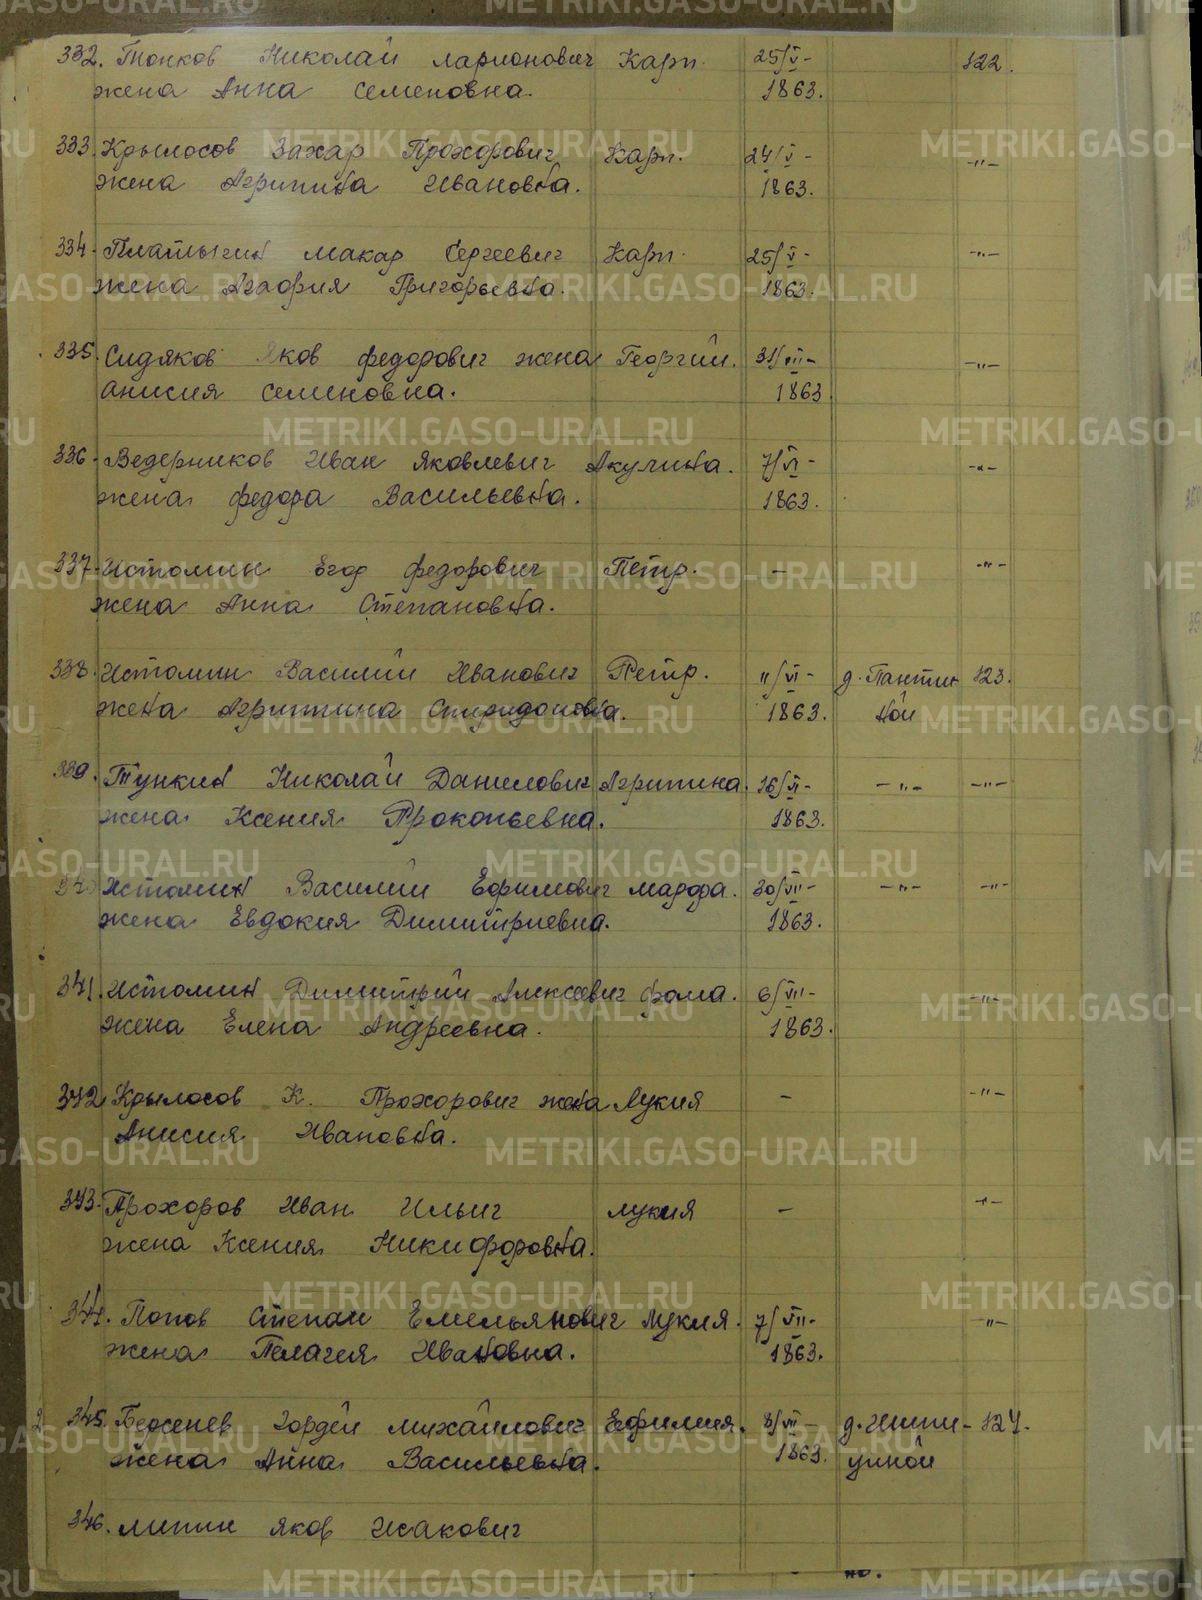 332. Тонков Николай Ларионович Карп. 25/V- 122.
жена Анна Семеновна. 1863.
333. Крылосов Захар Прохорович Карп. 24/V- -"-
жена Агрипина Ивановна. 1863.
334. Платыгин Макар Сергеевич Карп. 25/V- -"-
жена Агафия Григорьевна. 1863.
335. Сидяков Яков Федорович жена Георгий. 31/III- -"-
Анисия Семеновна. 1863
336. Ведерников Иван Яковлевич Акулина. 7/VI- -"-
жена Федора Васильевна. 1863.
337. Истомин Егор Федорович Петр. - -"-
жена Анна Степановна.
338. Истомин Василий Иванович Петр. 11/VI- д. Пантин 123.
жена Агрипина Спиридоновна. 1863. ной
339. Тункин Николай Данилович Агрипина. 16/VI- -"- -"-
жена Ксения Прокопьевна. 1863.
340 Истомин Василий Ефимович Марфа. 30/VII- -"- -"-
жена Евдокия Димитриевна. 1863.
341. Истомин Димитрий Алексеевич Фома. 6/VII- -"-
жена Елена Андреевна. 1863.
342 Крылосов К. Прохорович жена Лукия - -"-
Анисия Ивановна.
343. Прохоров Иван Ильич Лукия - -"-
жена Ксения Никифоровна.
344. Попов Степан Емельянович Лукия. 7/VII- -"-
жена Пелагея Ивановна. 1863.
345. Гордей Михайлович Ефимия. 8/VII- 124.
жена Анна Васильевна. 1863.
346. Липин Яков Исакович
METRIKI.GASO-URAL.RU